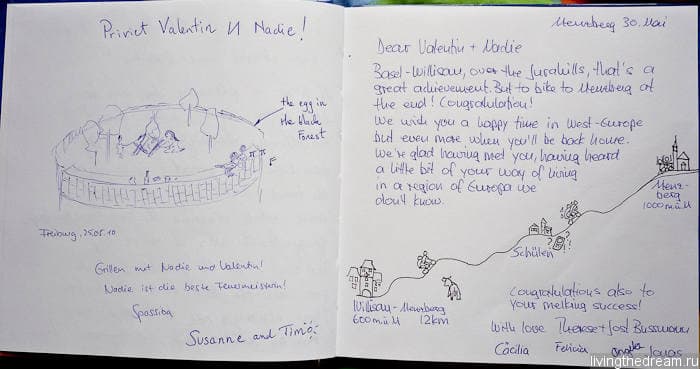 Priviet Valentin И Nadie!
the egg in
the black
Forest
Freiburg, 25.05.10
Grillen mit Nadie und Valentin!
Nadie ist die beste Feuermeisterin!
Spassiba
Susanne and Timo
Menzberg 30. Mai
Dear Valentin + Nadie
Basel-Willisau, over the Jurahills, that's a
great achievement. But to bike to Menzberg at
the end! Congratulation!
We wish you a happy time in West-Europe
but even more when you'll be back home.
We're glad having met you, having heard
a little bit of your way of living
in a region of Europa we
don't know.
Menz-
berg
1000 m ü M
Schülen
Willisau - Menzberg
600 m ü M 12km
Congratulations also to
your melking success!
With love Therese + Josef Bussmann
Cäcilia Felicia Angela Jonas
livingthedream.ru